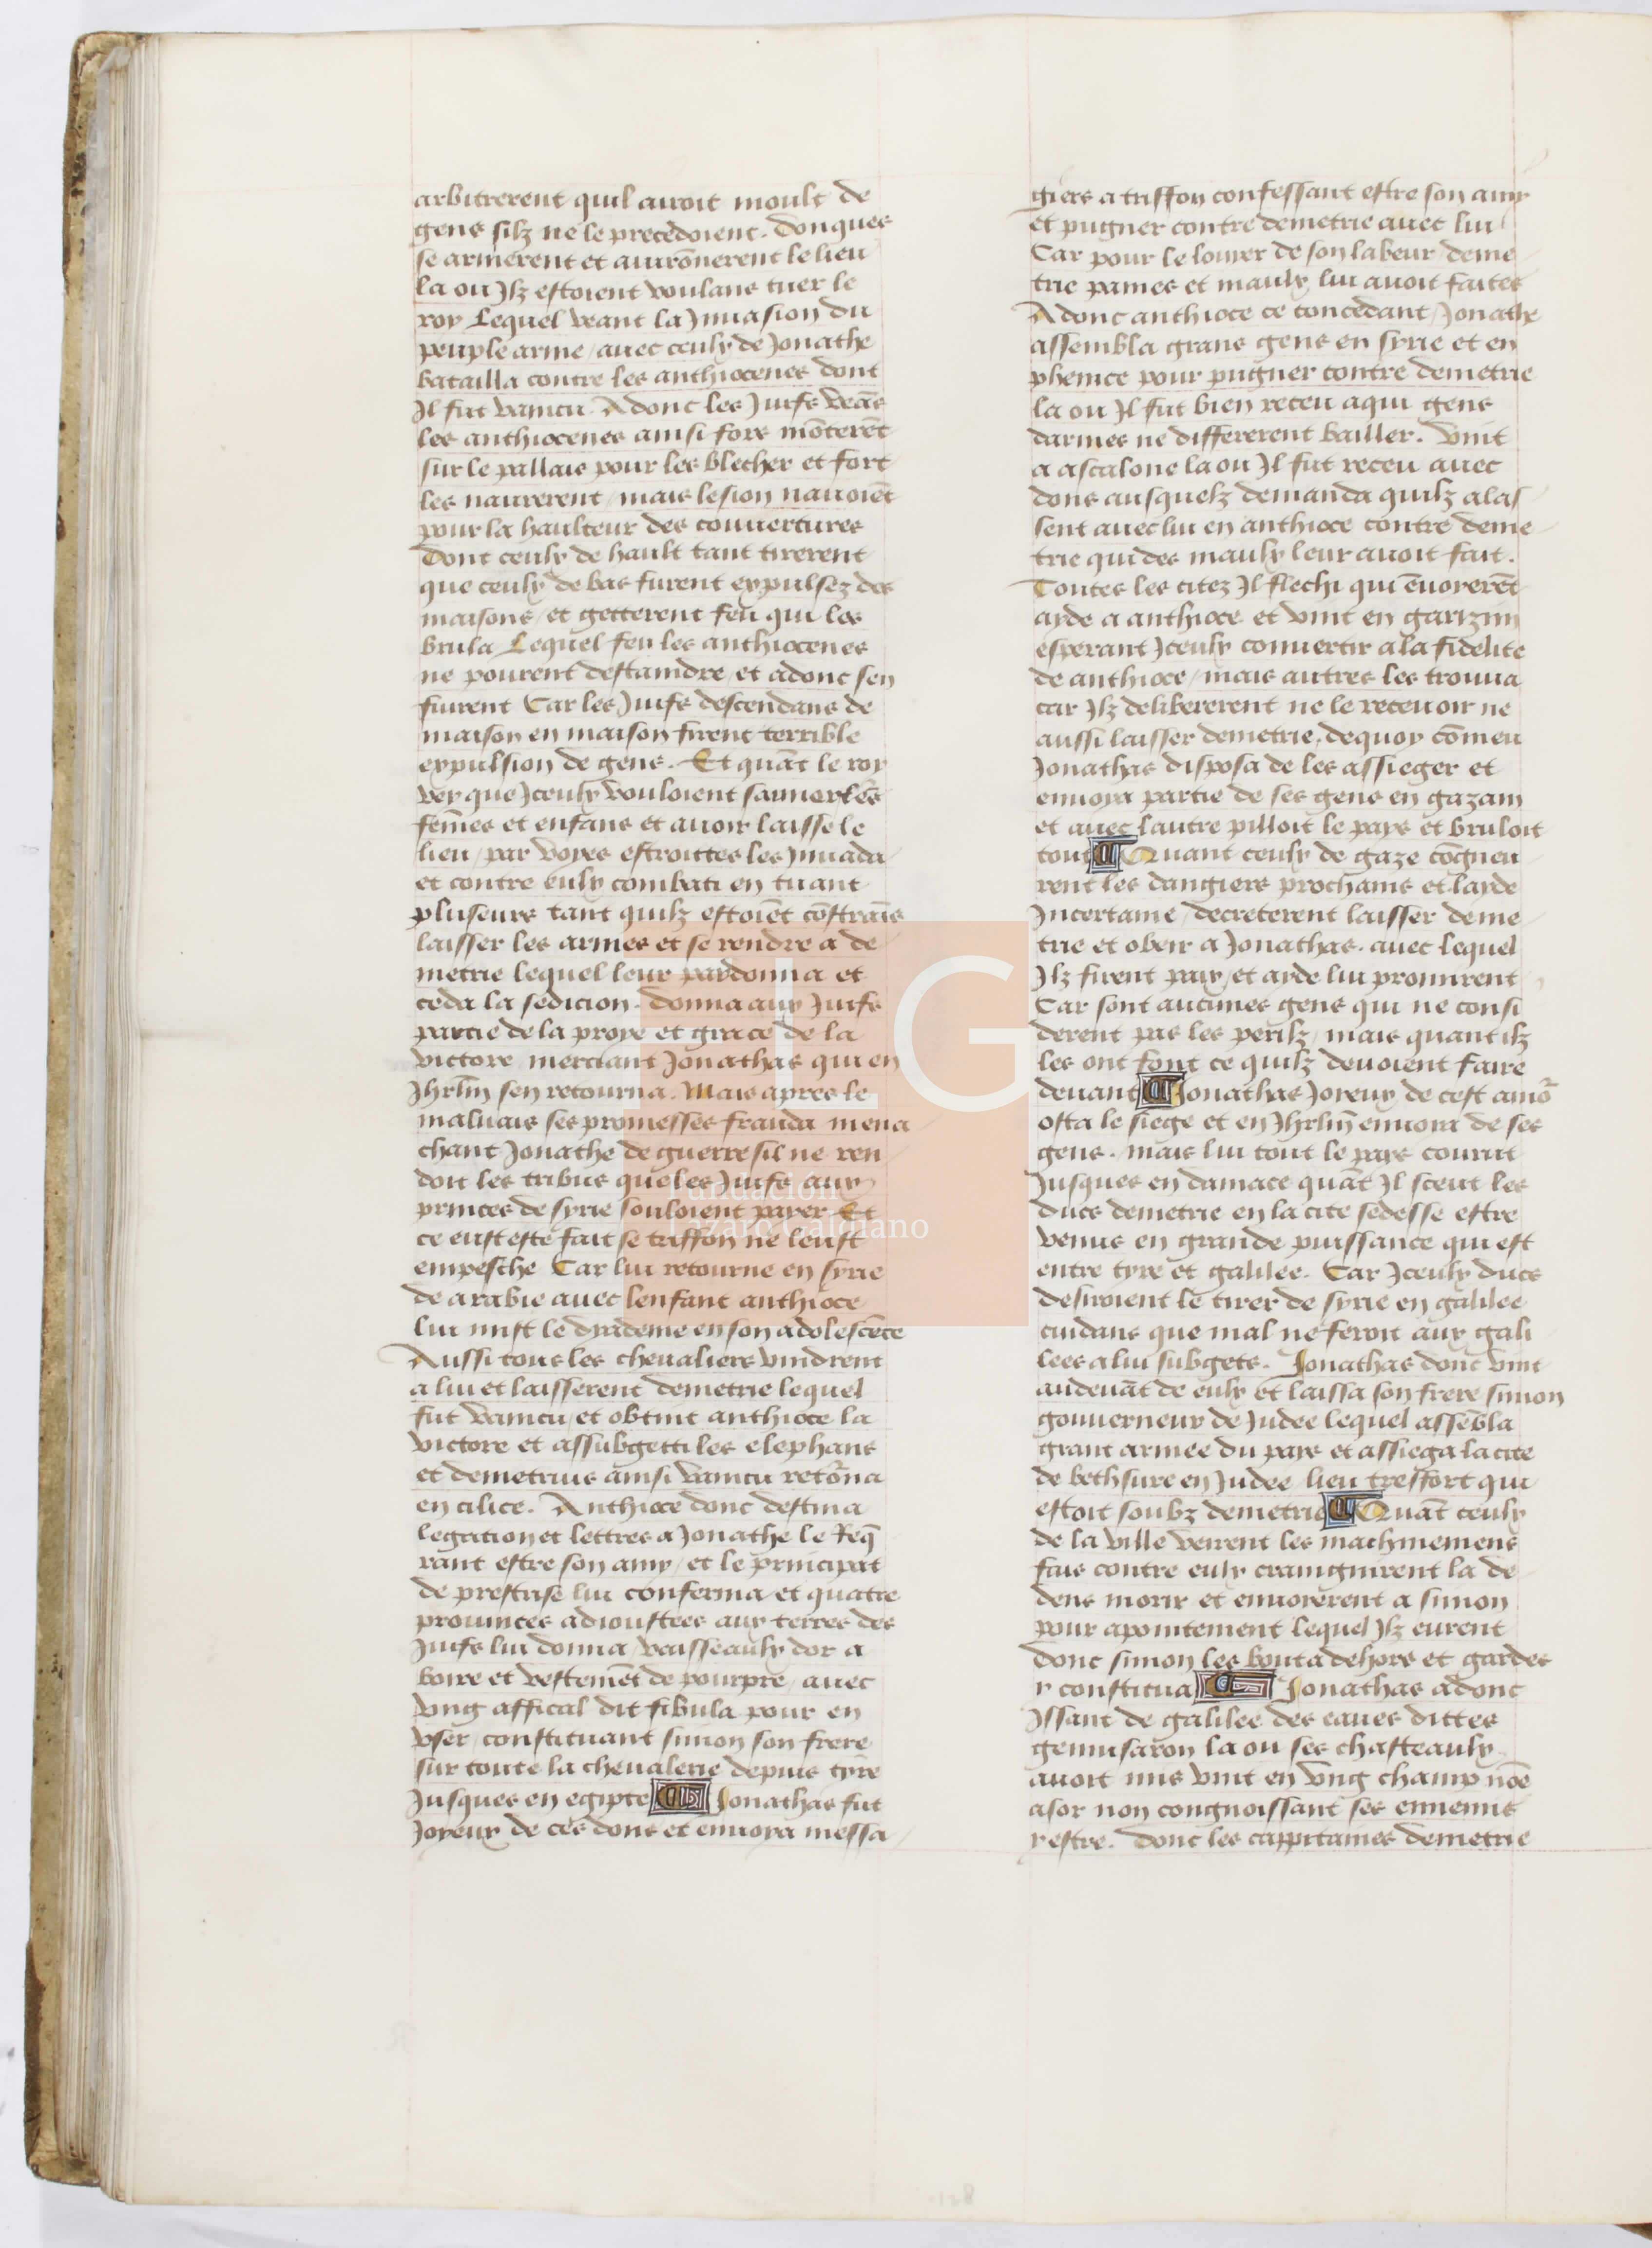 arbitrerent quil auroit moult de
gens silz ne le precedoient. donques
se armerent et auirōnerent le lieu
la ou Jlz estoient voulans tuer le
roy Lequel veant la Jnuasion du
peuple arme / auec ceulx de Jonathe
batailla contre les anthiocenes dont
Jl fut vaincu. Adonc les Juifs veās
les anthiocenes ainsi fors mōterēt
sur le pallais pour les blecher et fort
les naurerent / mais lesion nauoiēt
pour la haulteur des couuertures
Dont ceulx de hault tant tirerent
que ceulx de bas furent expulsez des
maisons / et getterent feu qui les
brula Lequel feu les anthiocenes
ne pourent destaindre / et adonc sen
fuirent Car les Juifs descendans de
maison en maison firent terrible
expulsion de gens. Et quāt le roy
vey que Jceulx vouloient sauuer leˢ
fēmes et enfans et auoir laisse le
lieu / par voyes estroittes les Jnuada
et contre eulx combati en tuant
pluseurs tant quilz estoiēt cōstraīs
laisser les armes et se rendre a de
metrie lequel leur pardonna et
ceda la sedicion. donna aux Juifs
partie de la proye et grace de la
victore merciant Jonathas qui en
Jhrlm̄ sen retourna. Mais apres le
maluais ses promesses frauda mena
chant Jonathe de guerre sil ne ren
doit les tribus que les Juifs aux
princes de syrie souloient payer Et
ce eust este fait se triffon ne leust
empesche Car lui retourne en syrie
de arabie auec lenfant anthioce
lui mist le dyademe en son adolescēce
Aussi tous les cheualiers vindrent
a lui et laisserent demetrie lequel
fut vaincu / et obtint anthioce la
victore et assubgetti les elephans
et demetrius ainsi vaincu retōrna
en cilice. Anthioce donc destina
legation et lettres a Jonathe le Req̄
rant estre son amy / et le principat
de prestrise lui conferma / et quatre
prouinces adioustees aux terres des
Juifs lui donna / vaisseaulx dor a
boire et vestemēt de pourpre / auec
vng affical dit fibula pour en
vser / constituant simon son frere
sur toute la cheualerie depuis tyre
Jusques en egipte Jonathas fut
Joyeux de ces dons et enuoya messa
giers a triffon confessant estre son amy
et pugner contre demetrie auec lui
Car pour le louyer de son labeur deme
trie paines et maulx lui auoit faites
Adonc anthioce ce concedant / Jonathe
assembla grans gens en syrie et en
phenice pour pugner contre demetrie
la ou Jl fut bien receu a qui gens
darmes ne differerent bailler. vint
a ascalone la ou Jl fut receu auec
dons ausquelz demanda quilz alas
sent auec lui en anthioce contre deme
trie qui des maulx leur auoit fait.
Toutes les citez Jl flechi qui ēuoyerēt
ayde a anthioce et vint en garizim
esperant Jceulx conuertir a la fidelite
de anthioce / mais autres les trouua
car Jlz delibererent ne le receuoir ne
aussi laisser demetrie / dequoy cōmeu
Jonathas disposa de les assieger et
enuoya partie de ses gens en gazam
et auec lautre pilloit le pays et bruloit
tout Quant ceulx de gaze cōgneu
rent les dangiers prochains et layde
Jncertaine / decreterent laisser deme
trie et obeir a Jonathas. auec lequel
Jlz firent paix / et ayde lui promirent
Car sont aucunes gens qui ne consi
derent pas les perilz / mais quant ilz
les ont font ce quilz deuoient faire
deuant Jonathas Joyeux de cest amōr
osta le siege et en Jhrlm̄ enuoya de ses
gens. mais lui tout le pays courut
Jusques en damace quāt Jl sceut les
ducs demetrie en la cite sedesse estre
venus en grande puissance qui est
entre tyre et galilee. Car Jceulx ducs
desiroient le tirer de syrie en galilee
cuidans que mal ne feroit aux gali
lees a lui subgets. Jonathas donc vint
audeuāt de eulx et laissa son frere simon
gouuerneur de Judee lequel assēbla
grant armee du pays et assiega la cite
de bethsure en Judee / lieu tresfort qui
estoit soubz demetrie Quāt ceulx
de la ville veirent les machinemens
fais contre eulx craingnirent la de
dens morir et enuoyerent a simon
pour apointement lequel Jlz eurent
donc simon les bouta dehors et gardes
y constitua Jonathas adonc
Jssant de galilee des eaues dittes
gennisaron la ou ses chasteaulx
auoit mis vint en vng champ nōe
asor non congnoissant ses ennemis
y estre. donc les cappitaines demetrie